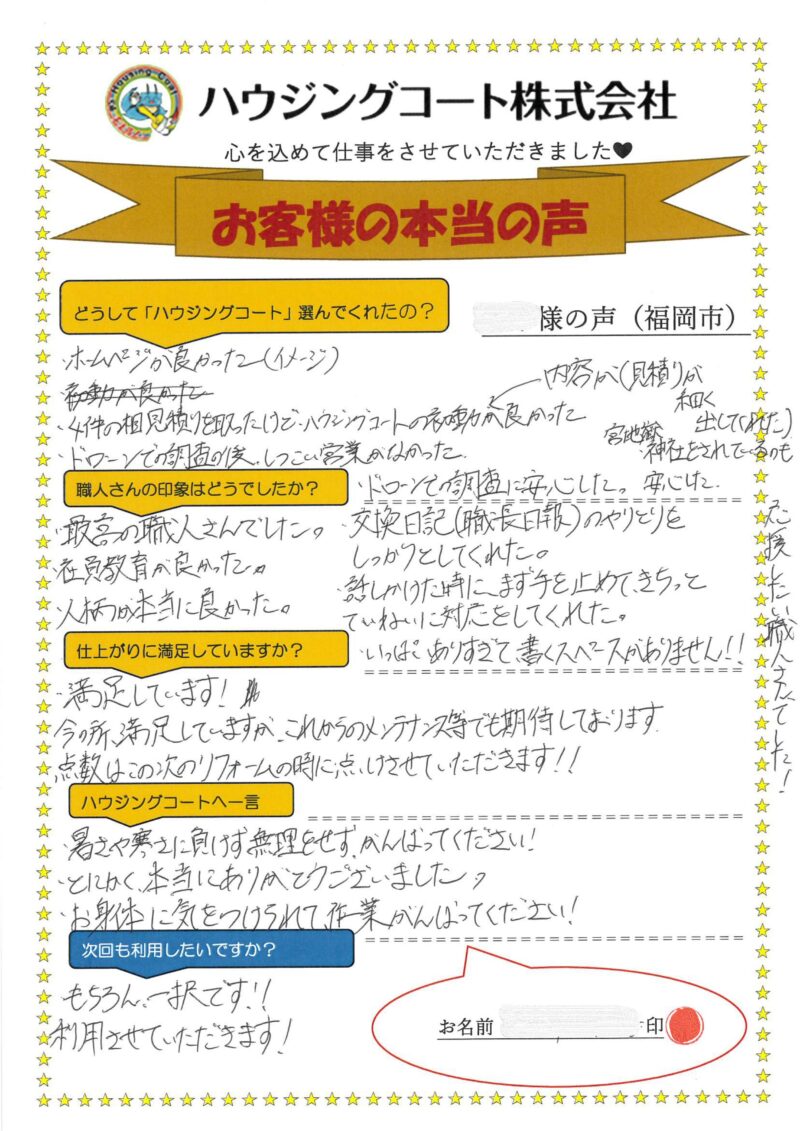 ハウジングコート株式会社
心を込めて仕事をさせていただきました♥
お客様の本当の声
どうして「ハウジングコート」選んでくれたの？
様の声（福岡市）
・ホームページが良かった（イメージ）
初動が良かった
・4件の相見積りを取ったけど・ハウジングコートの初動が良かった
内容が（見積りが
細く
出してくれた）
・ドローンでの調査の後、しつこい営業がなかった。
宮地嶽
神社をされているのも
安心した。
・ドローンでの調査に安心した。
職人さんの印象はどうでしたか？
最高の職人さんでした。
社員教育が良かった。
人柄が本当に良かった。
・交換日記（職長日報）のやりとりを
しっかりとしてくれた。
・話しかけた時に、まず手を止めてきちっと
ていねいに対応をしてくれた。
・いっぱいありすぎて書くスペースがありません！！
応援したい職人さんでした！
仕上がりに満足していますか？
・満足しています！
今の所、満足していますが、これからのメンテナンス等でも期待しております
点数はこの次のリフォームの時に点けさせていただきます！！
ハウジングコートへ一言
・暑さや寒さに負けず無理をせず、がんばってください！
・とにかく、本当にありがとうございました。
・お身体に気をつけられて、作業がんばってください！
次回も利用したいですか？
もちろん、一択です！！
利用させていただきます！
お名前
印